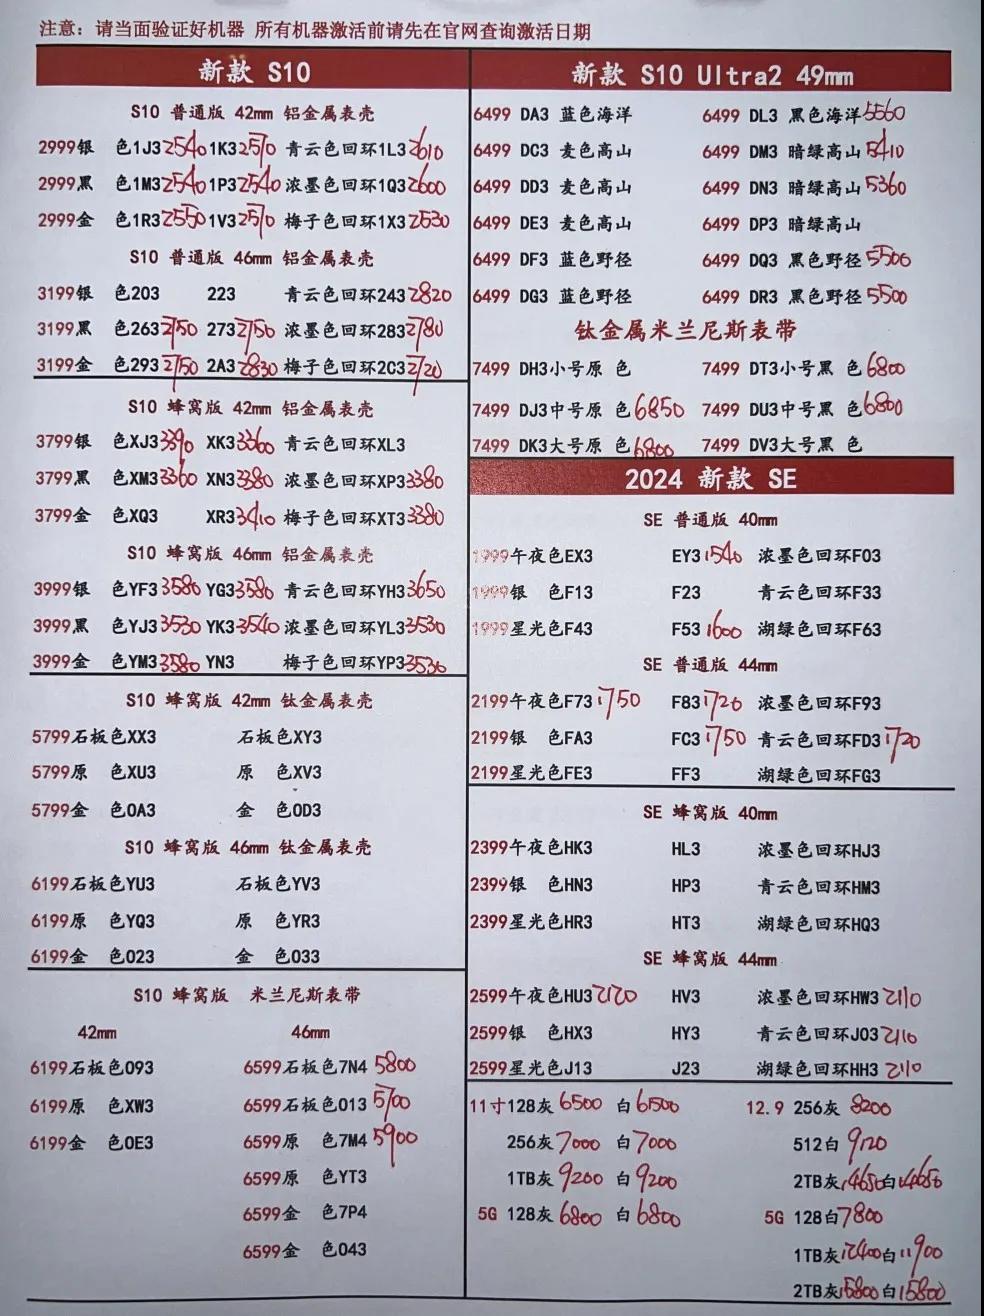 注意：请当面验证好机器 所有机器激活前请先在官网查询激活日期
新款 S10
S10 普通版 42mm 铝金属表壳
2999银 色1J3 2540 1K3 2510 青云色回环1L3 2610
2999黑 色1M3 2540 1P3 2540 浓墨色回环1Q3 2600
2999金 色1R3 2550 1V3 2510 梅子色回环1X3 2530
S10 普通版 46mm 铝金属表壳
3199银 色203 223 青云色回环243 2820
3199黑 色263 2750 273 2750 浓墨色回环283 2780
3199金 色293 2750 2A3 2830 梅子色回环2C3 2720
S10 蜂窝版 42mm 铝金属表壳
3799银 色XJ3 3390 XK3 3360 青云色回环XL3
3799黑 色XM3 3360 XN3 3380 浓墨色回环XP3 3380
3799金 色XQ3 XR3 3410 梅子色回环XT3 3380
S10 蜂窝版 46mm 铝金属表壳
3999银 色YF3 3580 YG3 3580 青云色回环YH3 3650
3999黑 色YJ3 3530 YK3 3540 浓墨色回环YL3 3530
3999金 色YM3 3580 YN3 梅子色回环YP3 3530
S10 蜂窝版 42mm 钛金属表壳
5799石板色XX3 石板色XY3
5799原 色XU3 原 色XV3
5799金 色0A3 金 色0D3
S10 蜂窝版 46mm 钛金属表壳
6199石板色YU3 石板色YV3
6199原 色YQ3 原 色YR3
6199金 色023 金 色033
S10 蜂窝版 米兰尼斯表带
42mm 46mm
6199石板色093 6599石板色7N4 5800
6199原 色XW3 6599石板色013 5700
6199金 色0E3 6599原 色7M4 5900
6599原 色YT3
6599金 色7P4
6599金 色043
新款 S10 Ultra2 49mm
6499 DA3 蓝色海洋 6499 DL3 黑色海洋 5560
6499 DC3 麦色高山 6499 DM3 暗绿高山 5410
6499 DD3 麦色高山 6499 DN3 暗绿高山 5360
6499 DE3 麦色高山 6499 DP3 暗绿高山
6499 DF3 蓝色野径 6499 DQ3 黑色野径 5500
6499 DG3 蓝色野径 6499 DR3 黑色野径 5500
钛金属米兰尼斯表带
7499 DH3小号原 色 7499 DT3小号黑 色 6800
7499 DJ3中号原 色 6850 7499 DU3中号黑 色 6800
7499 DK3大号原 色 6800 7499 DV3大号黑 色
2024 新款 SE
SE 普通版 40mm
1999午夜色EX3 EY3 1540 浓墨色回环F03
1999银 色F13 F23 青云色回环F33
1999星光色F43 F53 1600 湖绿色回环F63
SE 普通版 44mm
2199午夜色F73 1750 F83 1720 浓墨色回环F93
2199银 色FA3 FC3 1750 青云色回环FD3 1720
2199星光色FE3 FF3 湖绿色回环FG3
SE 蜂窝版 40mm
2399午夜色HK3 HL3 浓墨色回环HJ3
2399银 色HN3 HP3 青云色回环HM3
2399星光色HR3 HT3 湖绿色回环HQ3
SE 蜂窝版 44mm
2599午夜色HU3 2120 HV3 浓墨色回环HW3 2110
2599银 色HX3 HY3 青云色回环J03 2110
2599星光色J13 J23 湖绿色回环HH3 2110
11寸128灰 6500 白 6500 12.9 256灰 8200
256灰 7000 白 7000 512白 9120
1TB灰 9200 白 9200 2TB灰 14650 白 14650
5G 128灰 6800 白 6800 5G 128白 7800
1TB灰 12400 白 11900
2TB灰 15800 白 15800